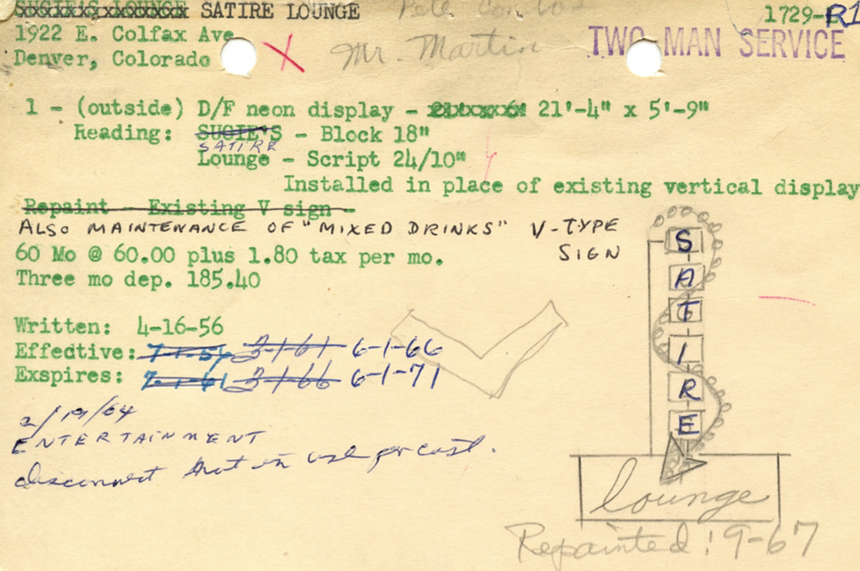 SUGIE'S LOUNGE SATIRE LOUNGE
1729-R1
1922 E. Colfax Ave
Denver, Colorado
Pete Contos
Mr. Martin
TWO MAN SERVICE
1 - (outside) D/F neon display - 21'-4" x 5'-9"
Reading: SUGIE'S - Block 18"
SATIRE
Lounge - Script 24/10"
Installed in place of existing vertical display
Repaint - Existing V sign -
ALSO MAINTENANCE OF "MIXED DRINKS" V-TYPE
SIGN
60 Mo @ 60.00 plus 1.80 tax per mo.
Three mo dep. 185.40
Written: 4-16-56
Effedtive: 7-1-56 3-1-61 6-1-66
Exspires: 7-1-61 3-1-66 6-1-71
2/19/64
ENTERTAINMENT
disconnect not in use per cust.
S
A
T
I
R
E
lounge
Repainted! 9-67